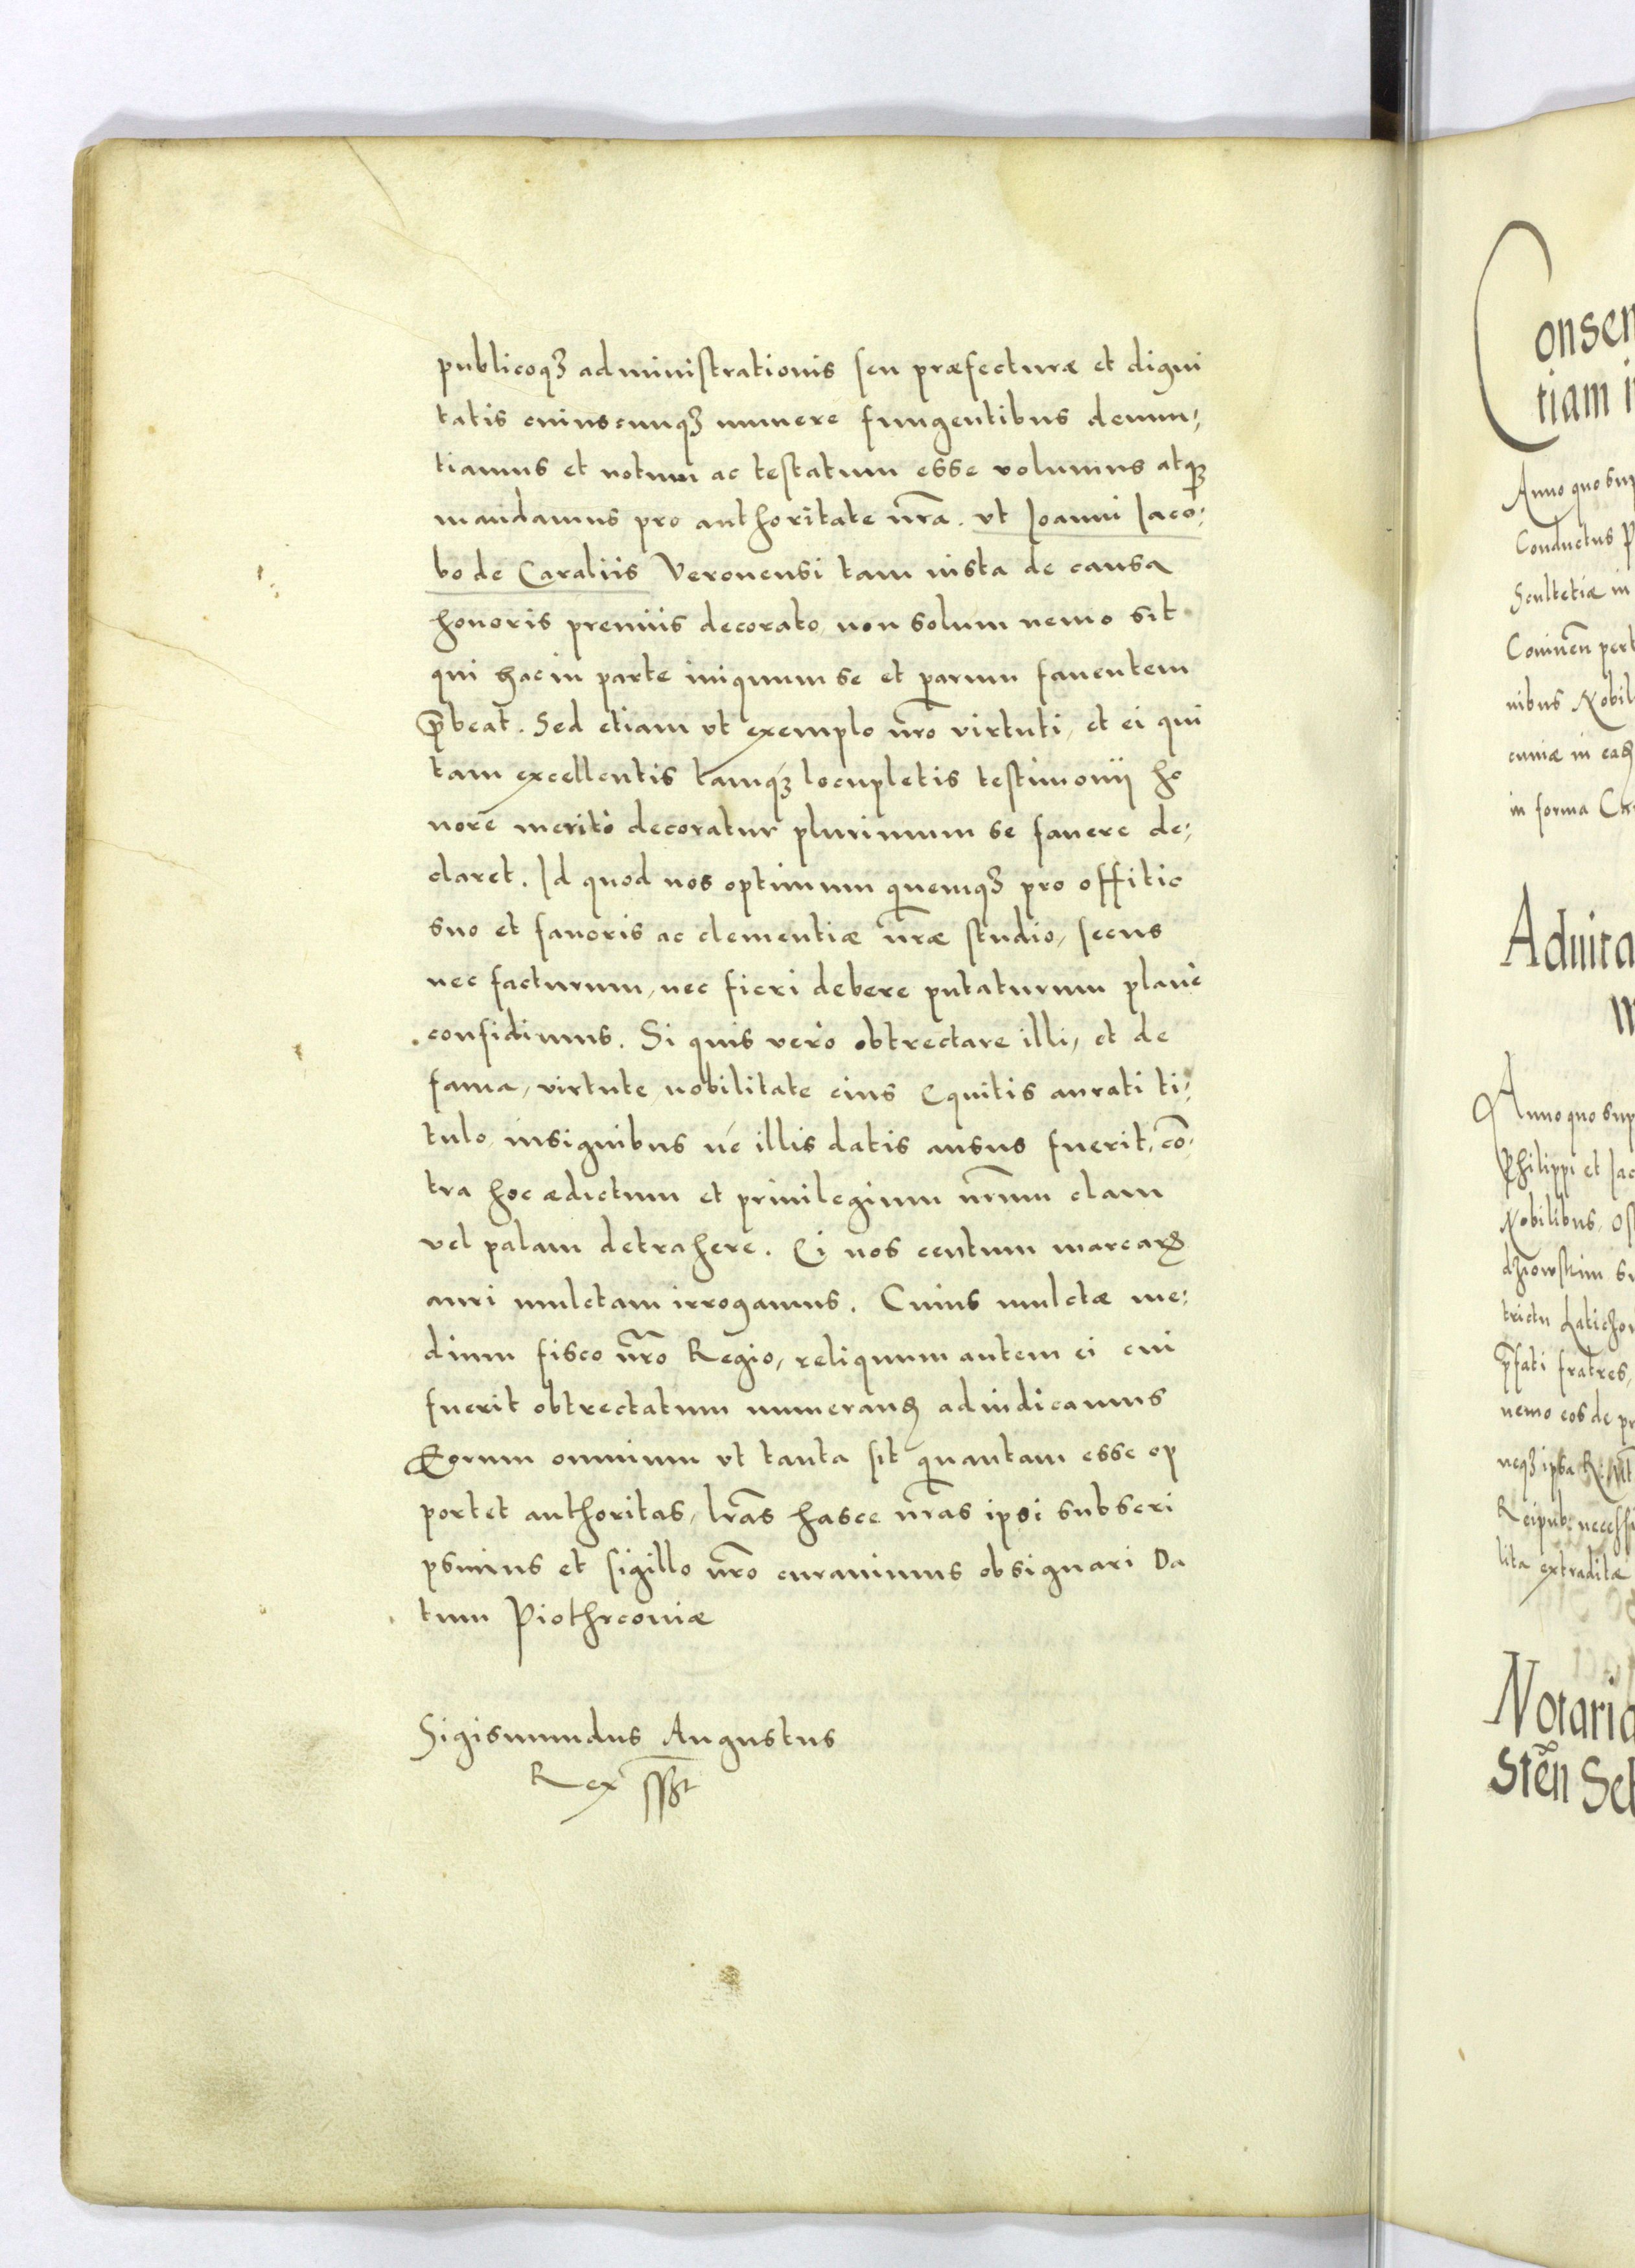 publicoqꝫ administrationis seu præfecturæ et digni
tatis cuiuscunqꝫ munere fungentibus denun:
tiamus et notum ac testatum esse volumus atqꝫ
mandamus pro authoritate nr̃a. vt Joanni Jaco:
bo de Caraliis Veronensi tam iusta de causa
honoris premiis decorato, non solum nemo sit
qui hac in parte iniquum se et parum fauentem
p̃beat. Sed etiam vt exemplo nr̃o virtuti, et ei qui
tam excellentis tamqꝫ locupletis testimonij ho
nore merito decoratur plurimum se fauere de:
claret. Id quod nos optimum quemqꝫ pro offitio
suo et fauoris ac clementiæ nr̃æ studio, secus
nec facturum, nec fieri debere putaturum planè
confidimus. Si quis verò obtrectare illi, et de
fama, virtute, nobilitate eius Equitis aurati ti:
tulo, insignibus ué illis datis ausus fuerit, cõ:
tra hoc ædictum et priuilegium nr̃um clam
vel palam detrahere. Ei nos centum marcarꝝ
auri mulctam irrogamus. Cuius mulctæ me:
dium fisco nr̃o Regio, reliquum autem ei cui
fuerit obtrectatum numerandꝫ adiudicamus
Eorum omnium vt tanta sit quantam esse op
portet authoritas, lr̃as hasce nr̃as ipsi subscri
psimus et sigillo nr̃o curauimus obsignari Da
tum Piothrcouiæ
Sigismundus Augustus
Rex sst
Consen
tiam i
Anno quo sup
Conductus P
Scultetiæ in
Conuen̄ pert
nibus Nobil
cuniæ in eaꝗ
in forma Ca
Aduita
Anno quo sup
Philippi et Jac
Nobilibus, Os
dzrowskim su
trictu Laticho
p̃fati fratres,
nemo eos de pr
neqꝫ ipsa R. Mt
Reipub: necessi
lita extraditæ
Notaria
Sten̄ Seb